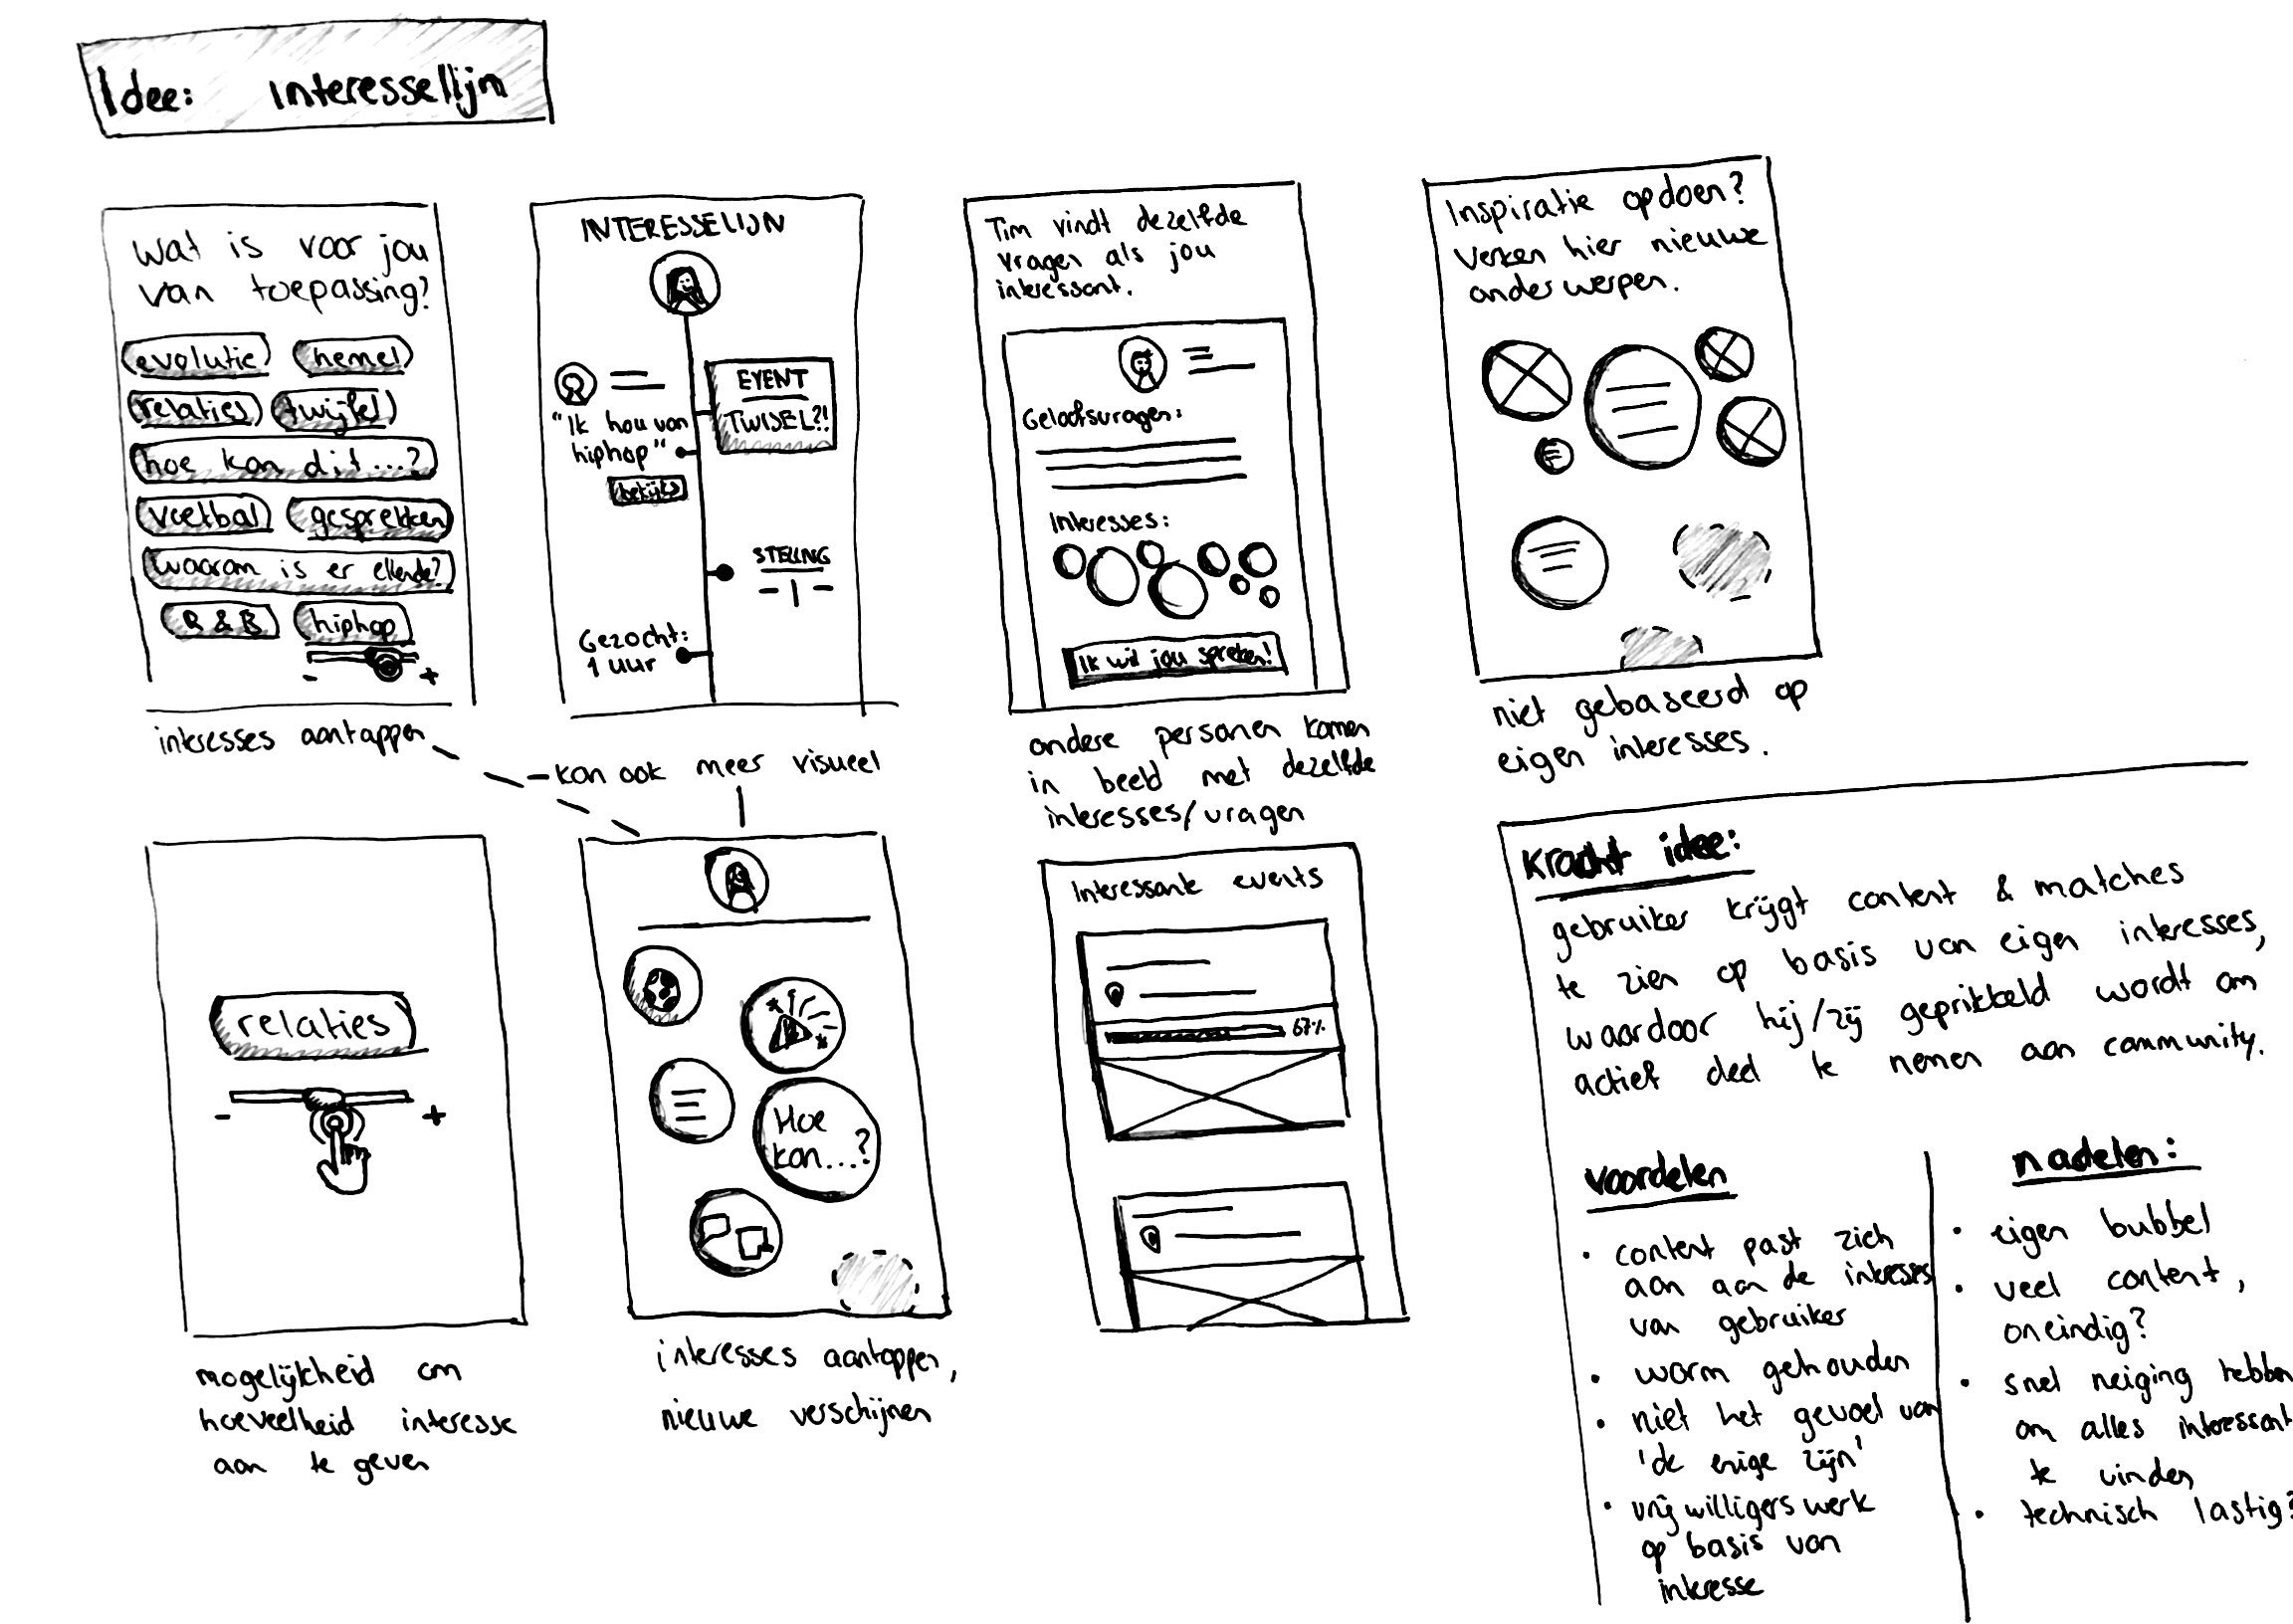 Idee: interesselijn
Wat is voor jou
van toepassing?
evolutie
hemel
relaties
twijfel
hoe kan dit...?
voetbal
gesprekken
waarom is er ellende?
R & B
hiphop
- +
interesses aantappen
INTERESSELIJN
EVENT
TWIJFEL?!
"Ik hou van
hiphop"
bekijk
STELLING
Gezocht:
1 uur
kan ook meer visueel
Tim vindt dezelfde
vragen als jou
interessant.
Geloofsvragen:
Interesses:
Ik wil jou spreken!
andere personen komen
in beeld met dezelfde
interesses/vragen
Inspiratie opdoen?
Verken hier nieuwe
onderwerpen.
niet gebaseerd op
eigen interesses.
relaties
- +
mogelijkheid om
hoeveelheid interesse
aan te geven
Hoe
kan...?
interesses aantappen,
nieuwe verschijnen
Interessante events
67%
Kracht idee:
gebruiker krijgt content & matches
te zien op basis van eigen interesses,
waardoor hij/zij geprikkeld wordt om
actief deel te nemen aan community.
voordelen
• content past zich
aan aan de interesses
van gebruiker
• warm gehouden
• niet het gevoel van
'de enige zijn'
• vrijwilligerswerk
op basis van
interesse
nadelen:
• eigen bubbel
• veel content,
oneindig?
• snel neiging hebben
om alles interessant
te vinden
• technisch lastig?